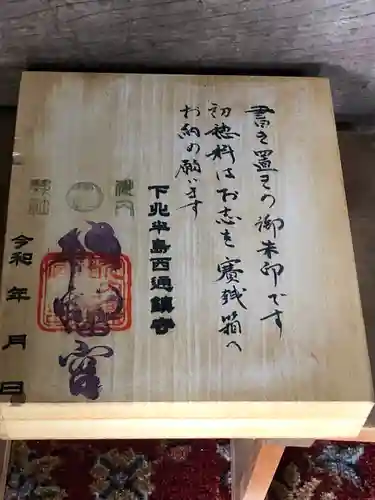 書き置きの御朱印です
初穂料はお志を賽銭箱へ
お納め願います
下北半島西通鎮守
八幡宮
令和 年 月 日